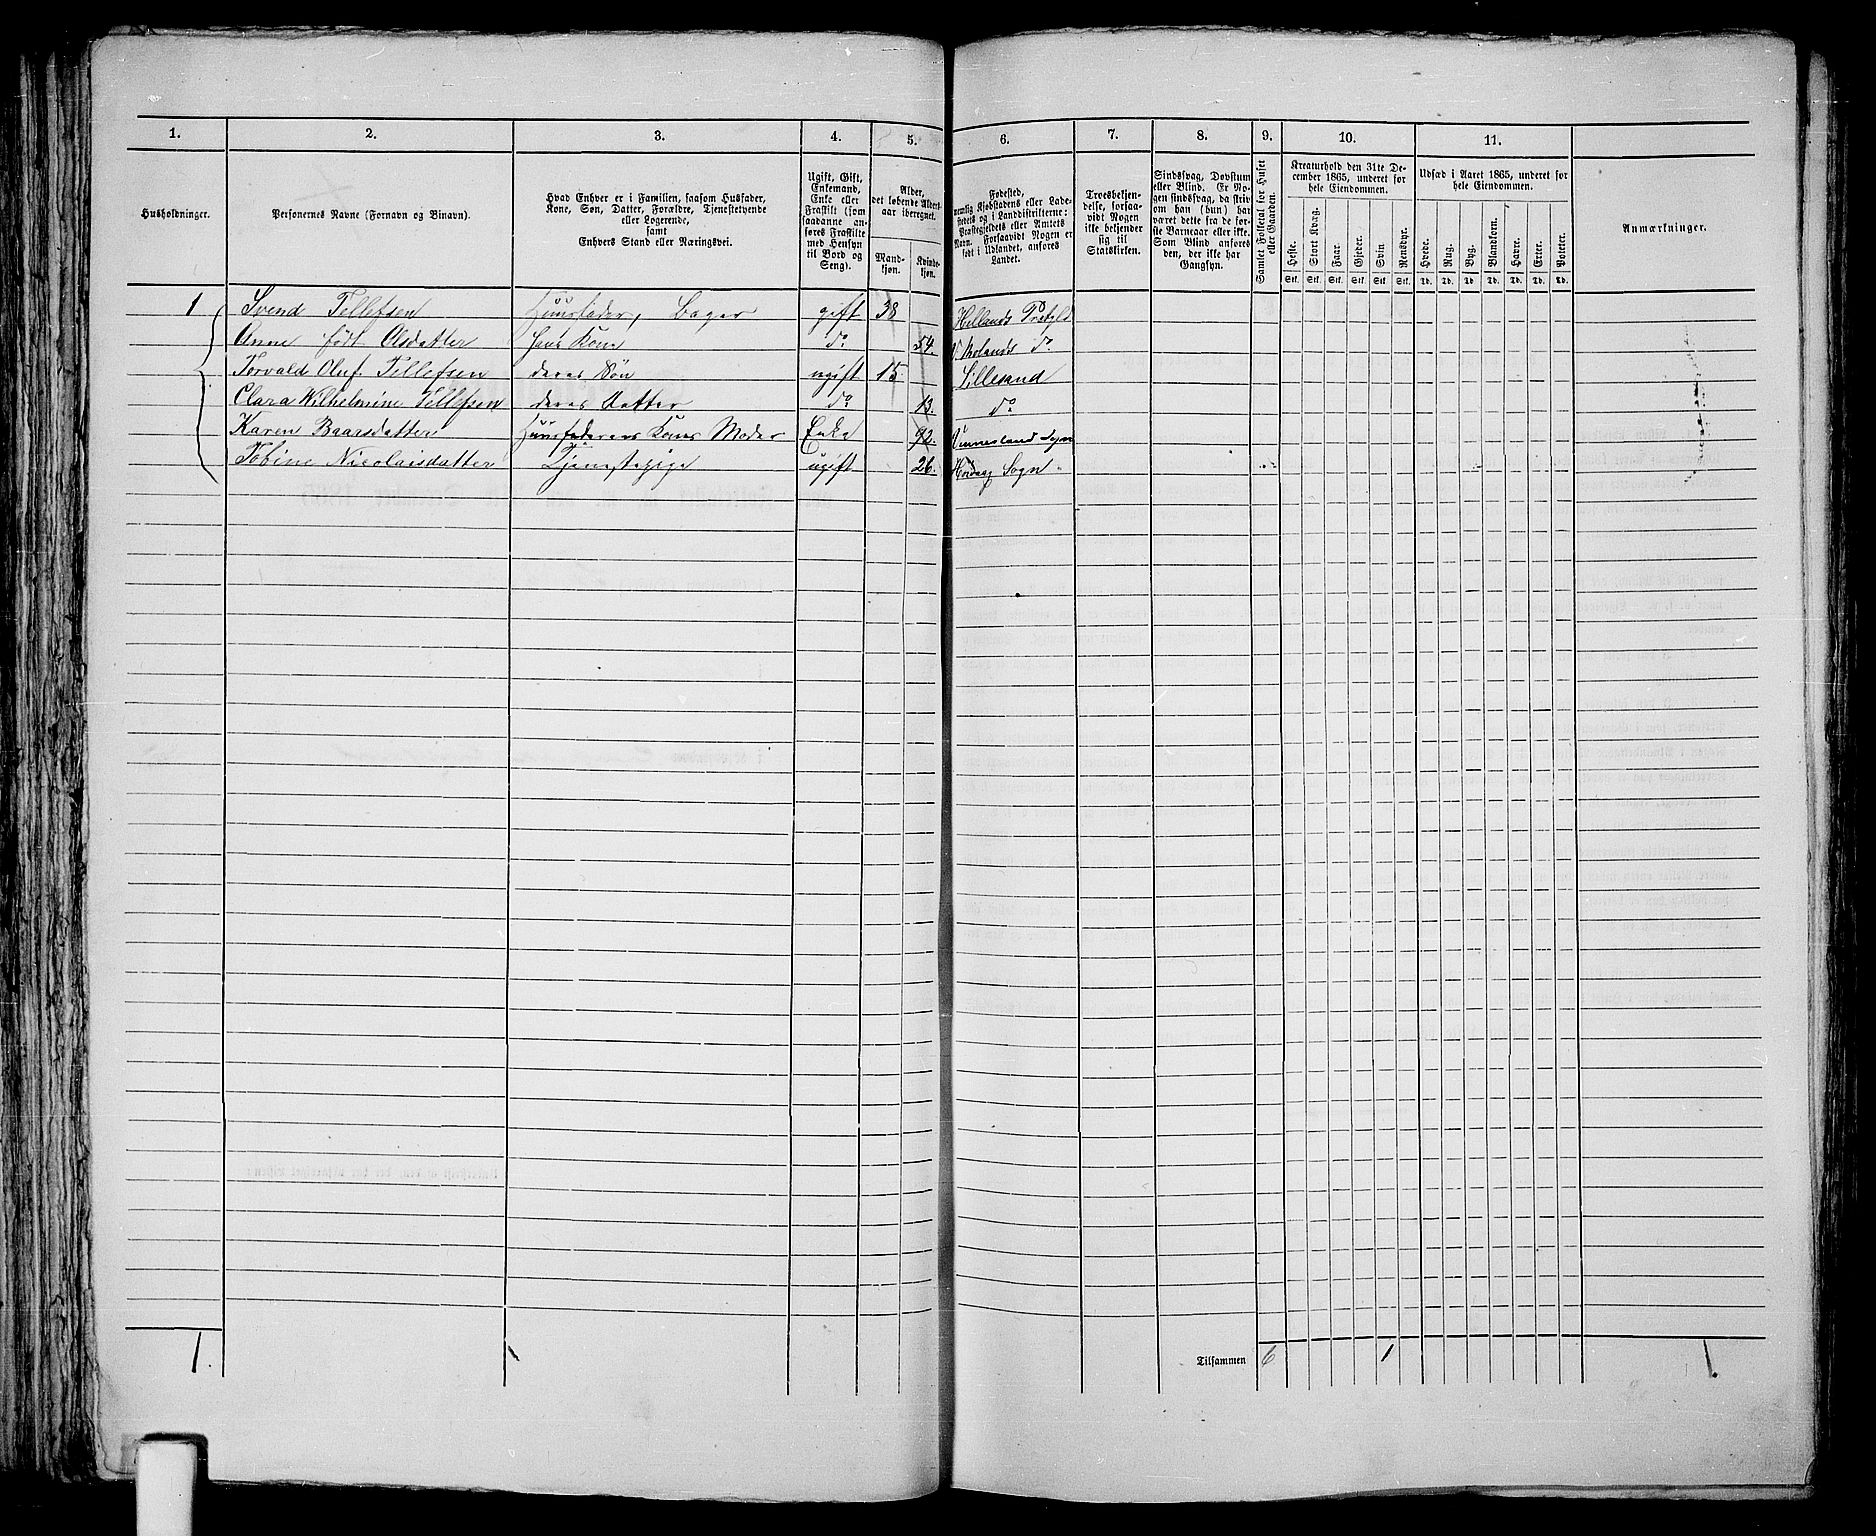 1. 2. 3. 4. 5. 6. 7. 8. 9. 10. 11.
Husholdninger.
Personernes Navne (Fornavn og Binavn).
Hvad Enhver er i Familien, saasom Husfader,
Kone, Søn, Datter, Forældre, Tjenstetyende
eller Logerende,
samt
Enhvers Stand eller Næringsvei.
Ugift, Gift,
Enkemand,
Enke eller
Fraskilt (som
saadanne an-
føres Fraskilte
med Hensyn
til Bord og
Seng).
Alder,
det løbende Alders-
aar iberegnet.
Mand-
kjøn.
Kvinde-
kjøn.
Fødested,
nemlig Kjøbstadens eller Lade-
stedets og i Landdistrikterne:
Præstegjeldets eller Amtets
Navn. Forsaavidt Nogen er
født i Udlandet, anføres
Landet.
Troesbekjen-
delse, forsaa-
vidt Nogen
ikke bekjender
sig til
Statskirken.
Sindssvag, Døvstum
eller Blind. Er No-
gen sindssvag, da skriv
om han (hun) har
været dette fra de før-
ste Barneaar eller ikke.
Som Blind anføres
den, der ikke har
Gangsyn.
Samlet Folketal for Huset
eller Gaarden.
Kreaturhold den 31te De-
cember 1865, underet for
hele Eiendommen.
Heste. Stort Kvæg. Faar. Gjeder. Svin Rensdyr.
Stk. Stk. Stk. Stk. Stk. Stk.
Udsæd i Aaret 1865, underet for
hele Eiendommen.
Hvede. Rug. Byg. Blandkorn. Havre. Erter. Poteter.
Td. Td. Td. Td. Td. Td. Td.
Anmærkninger.
1 Svend Tellefsen Huusfader, Bager gift 38 Præstgjld
Anne født Olsdatter Hans Kone do 54. do
Torvald Oluf Tellefsen deres Søn ugift 15 Lillesand
Clara Wilhelmine Tellefsen deres Datter do 13. do
Karen Baarsdatter Huusfaderens Kones Moder Enke 92. Sogn
Tobine Nicolaisdatter Tjenestepige ugift 26. Sogn
1. Tilsammen 6 1 1.